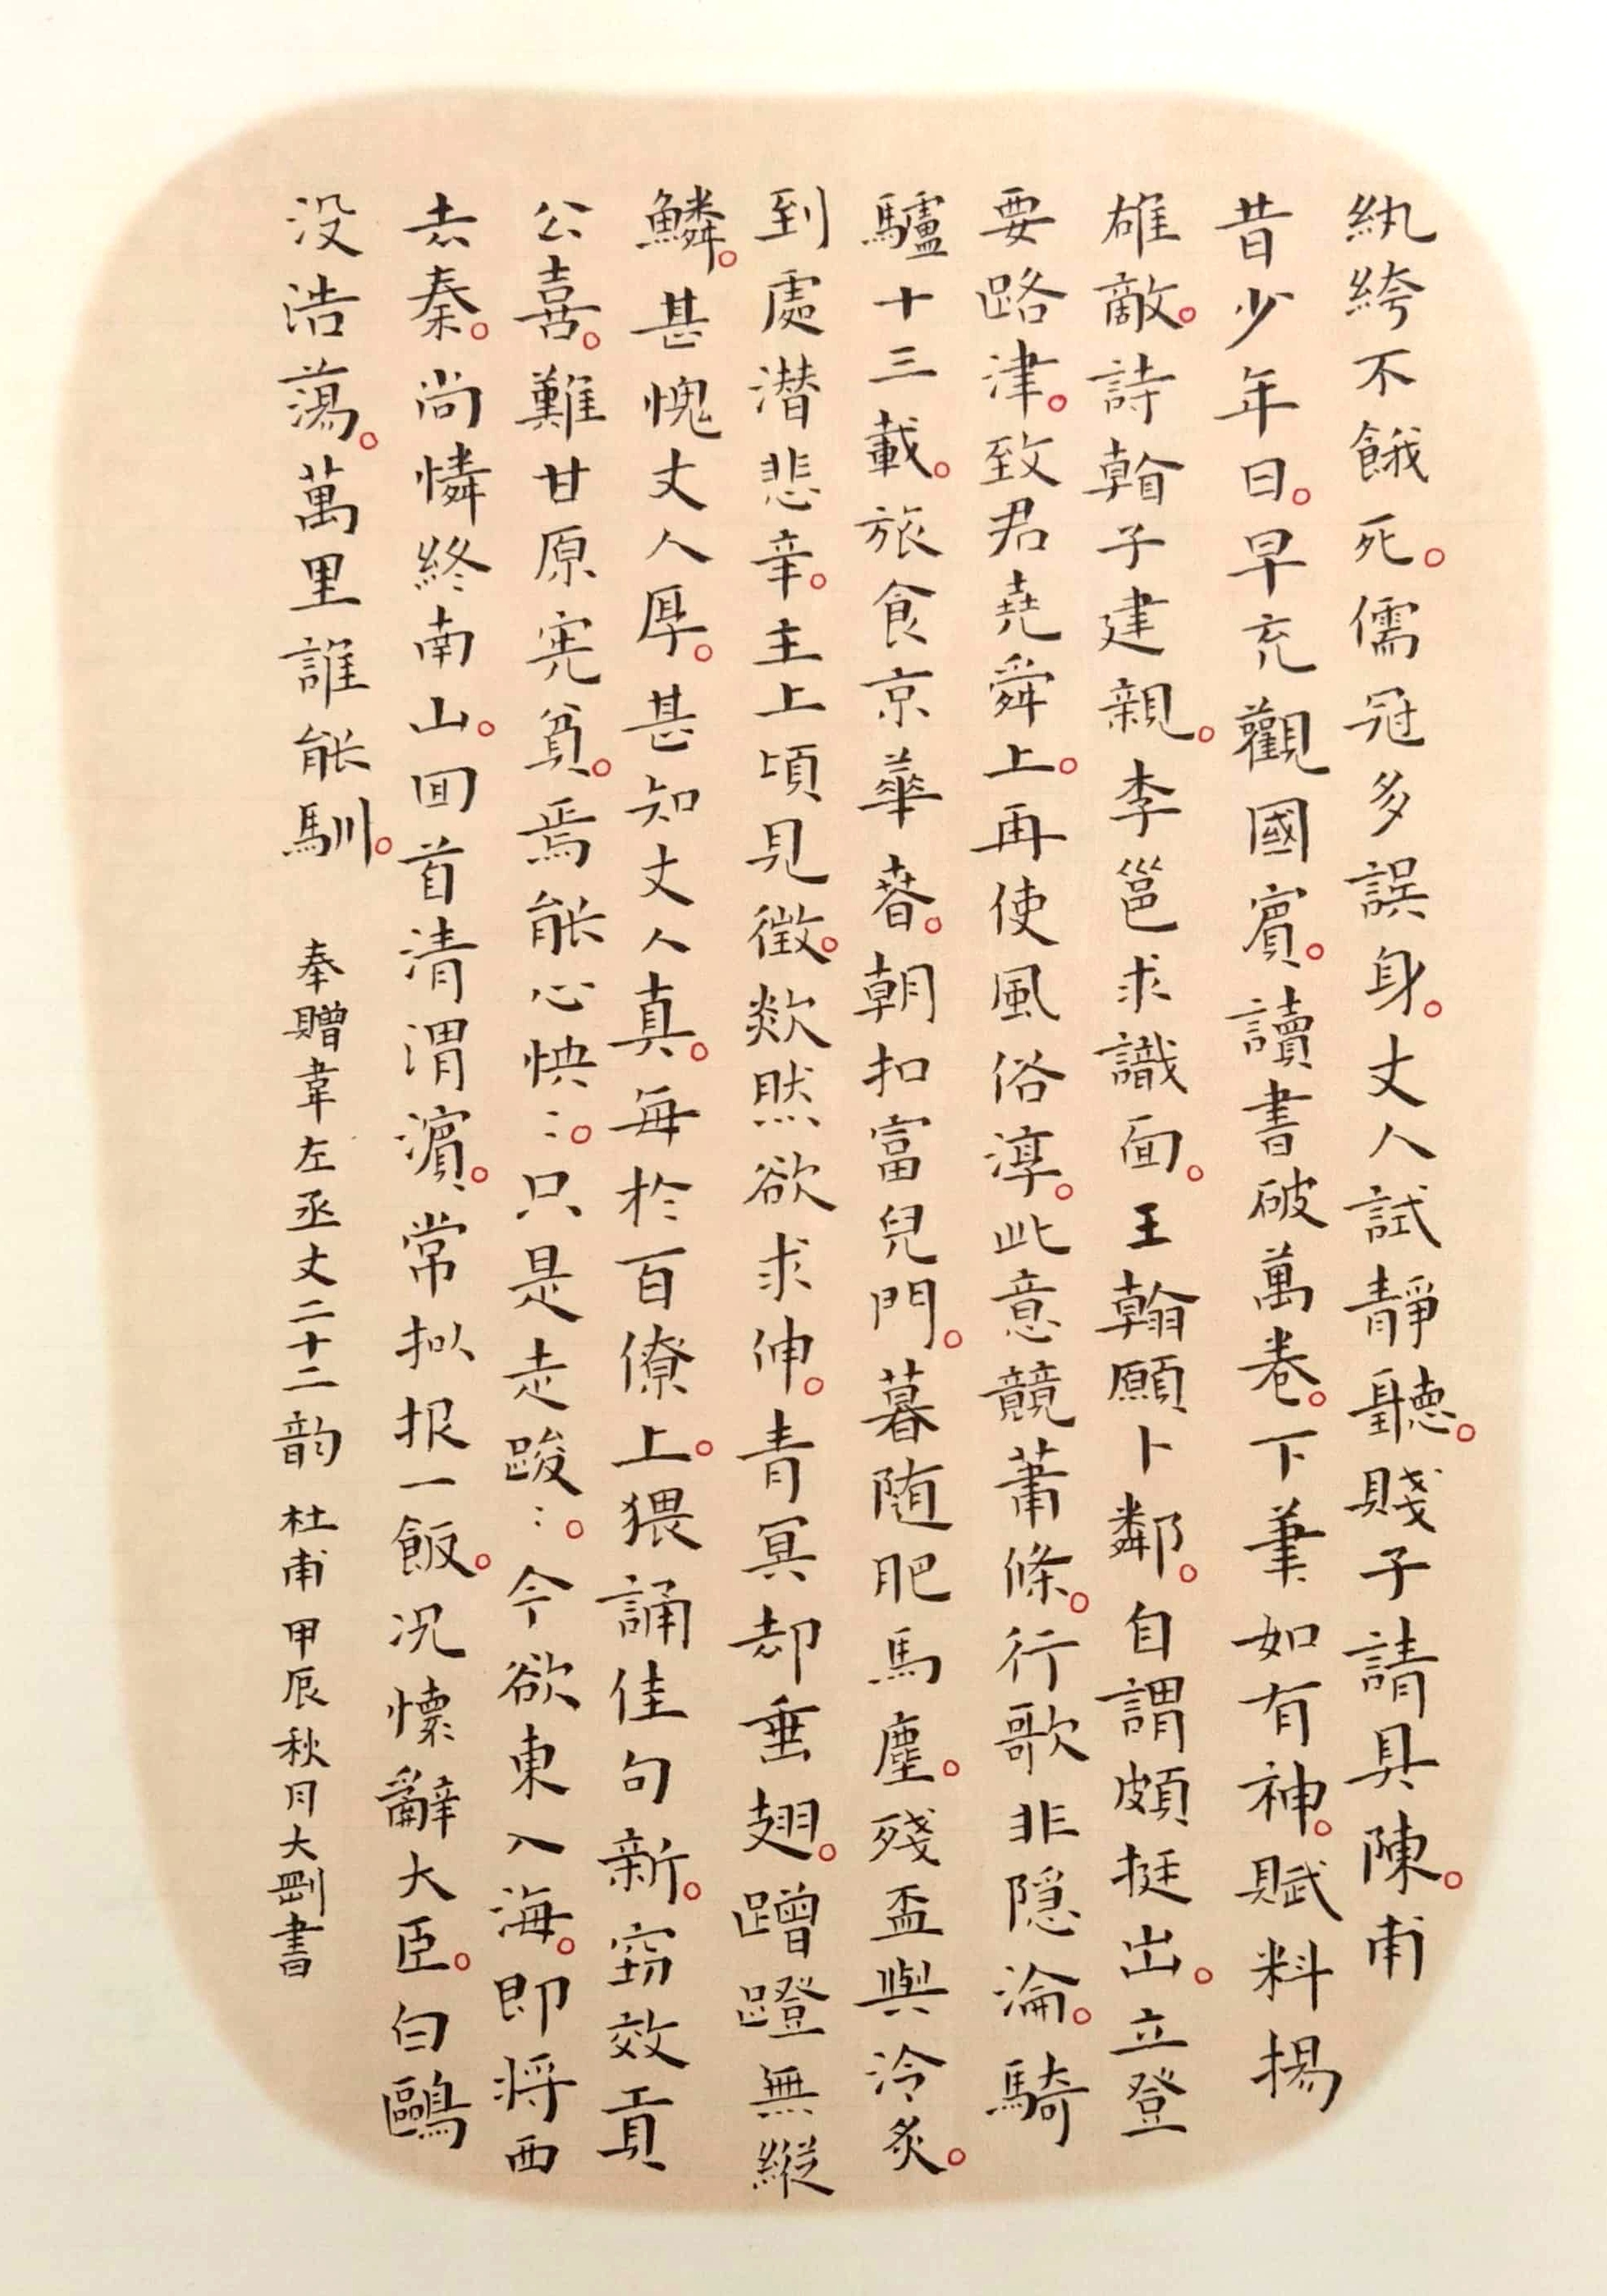 紈絝不餓死。儒冠多誤身。丈人試靜聽。賤子請具陳。甫
昔少年日。早充觀國賓。讀書破萬卷。下筆如有神。賦料揚
雄敵。詩㫋子建親。李邕求識面。王翰願卜鄰。自謂頗挺出。立登
要路津。致君堯舜上。再使風俗淳。此意競蕭條。行歌非隱淪。騎
驢十三載。旅食京華春。朝扣富兒門。暮随肥馬塵。殘盃與冷炙。
到處潜悲辛。主上頃見徵。欻然欲求伸。青冥却垂翅。蹭蹬無縱
鱗。甚愧丈人厚。甚知丈人真。每於百僚上。猥誦佳句新。窃效貢
公喜。難甘原宪貧。焉能心怏〻。只是走踆〻。今欲東入海。即将西
去秦。尚憐終南山。回首清渭濱。常拟报一飯。况懷辭大臣。白鷗
没浩蕩。萬里誰能馴。 奉贈韋左丞丈二十二韵 杜甫 甲辰秋月大劉書